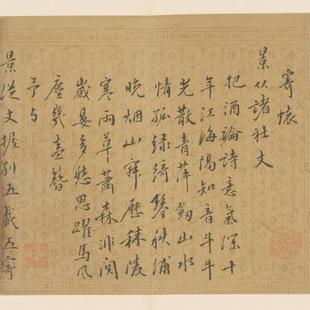 寄懷
景从諸社丈
把酒論詩意氣深十
年江海隔知音斗牛
光散青萍劍山水
情孤綠綺琴秋浦
晚烟山寂歷秣陵
寒雨草蕭森非関
歲宴多愁思躍馬風
塵幾盍簪
予与
景從丈握別五載五寄